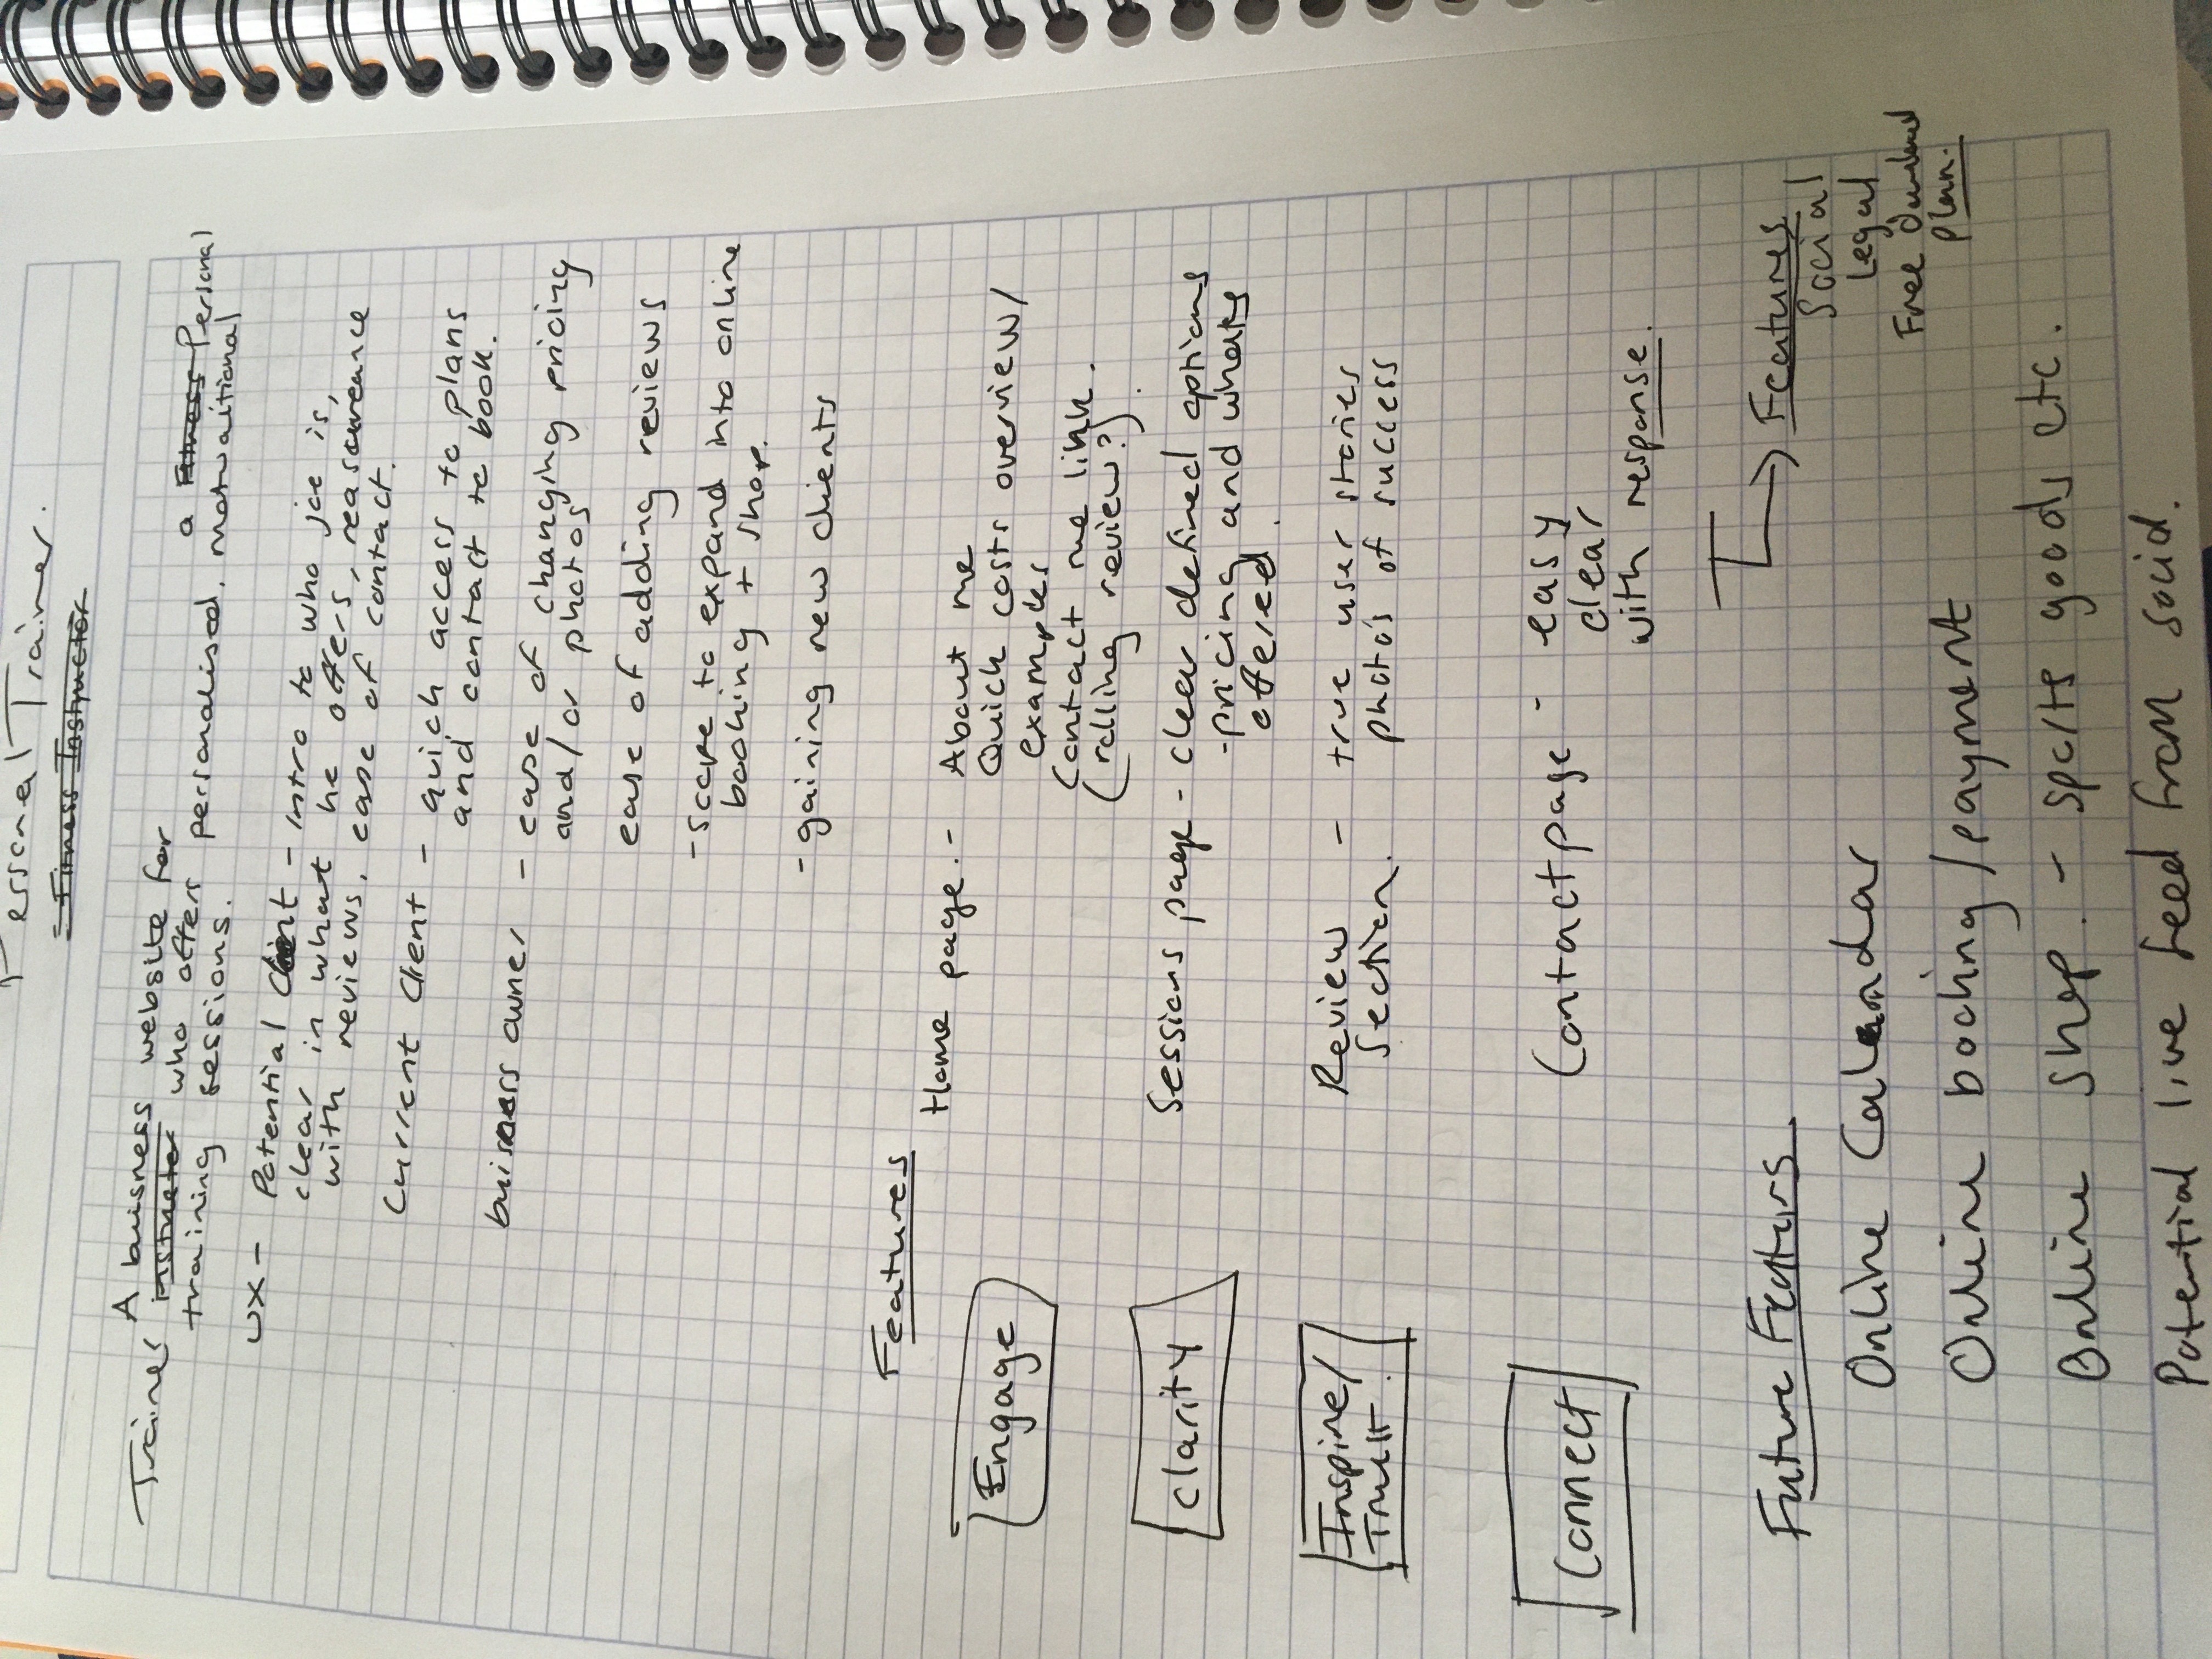 Personal Trainer.
Fitness Instructor
A buisness website for a Fitness Personal
Trainer instructor who offers personalised, motivaitional
training sessions.
UX - Potential Client - intro to who joe is,
clear in what he offers, reasureance
with reviews, ease of contact.
Current Client - quich access to plans
and contact to book.
buisness owner - ease of changing pricing
and/or photos
ease of adding reviews
- scope to expand into online
booking + shop.
- gaining new clients
Features
Engage
Home page. - About me
Quick costs overview/
examples
Contact me link.
(rolling review?).
Clarity
Sessions page - clear defined options
- pricing and whats
offered.
Inspire/
Trust.
Review - true user stories
Section. photo's of success
Connect
Contact page - easy
clear
with response.
Future Featurs.
Features
Social
Legal
Free Download
plan.
Online Calandar
Online booking/payment
Online Shop. - sports goods etc.
Potential live feed from social.